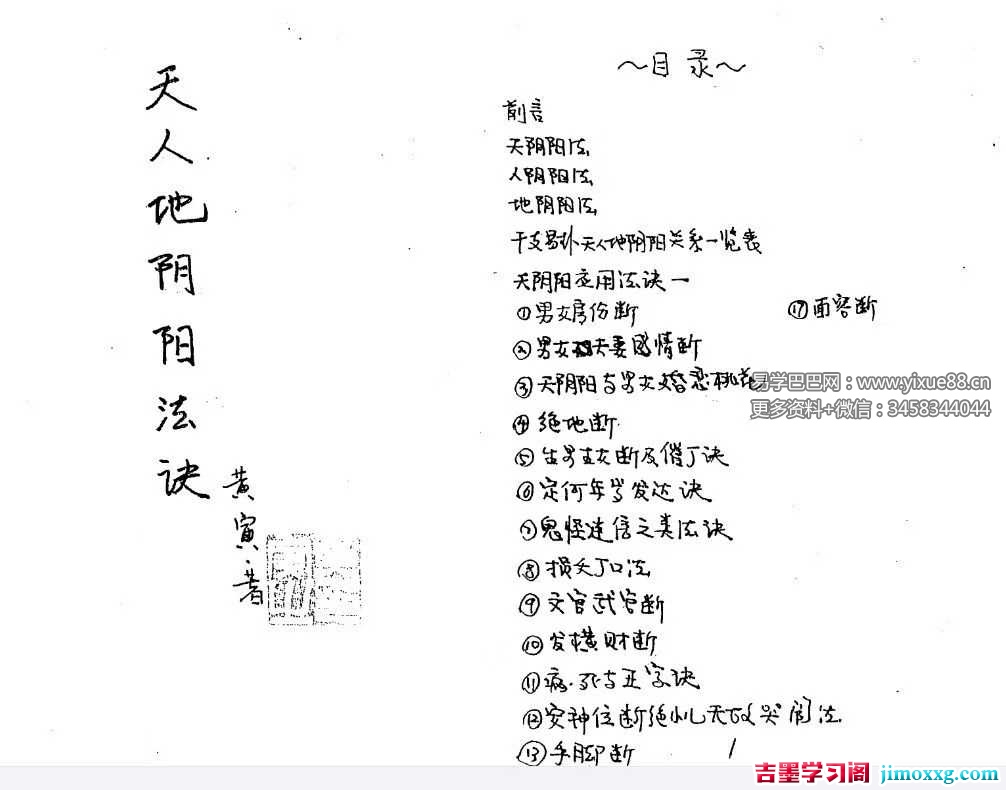 天人地阴阳法诀
黄寅·著
~目录~
前言
天阴阳法
人阴阳法
地阴阳法
干支易卦天人地阴阳关系一览表
天阴阳应用法诀一
①男女房份断
⑰面容断
②男女夫妻感情断
③天阴阳与男女婚恋桃花
④绝地断
⑤生男生女断及催丁诀
⑥定何年岁发达诀
⑦鬼怪迷信之类法诀
⑧损丁口法
⑨文官武官断
⑩发横财断
⑪病·死与正字诀
⑫安神位断绝小儿无故哭闹法
⑬手脚断
1
易学巴巴网：www.yixue88.cn
更多资料+微信：3458344044
吉墨学习阁 jimoxxg.com